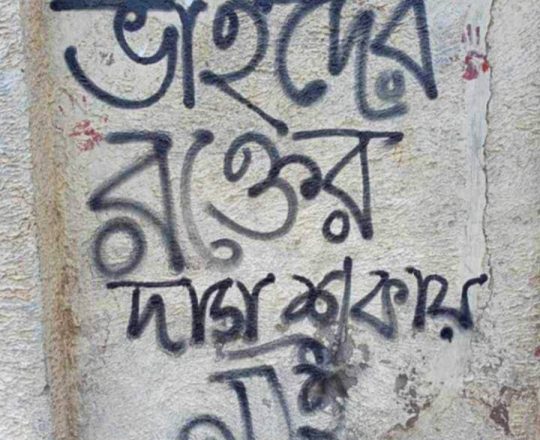 ভাইদের
রক্তের
দাগ শুকায়
নাই